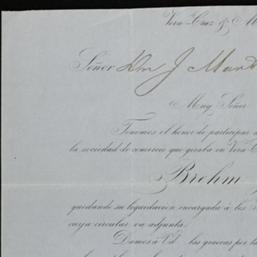 Vera-Cruz & M
Señor Dn J
Muy Señor
Tenemos el honor de participar
la sociedad de comercio que giraba en Vera-C
Brehm
quedando su liquidacion encargada á los
cuya circular va adjunta.
Damos á Vd. las gracias por la